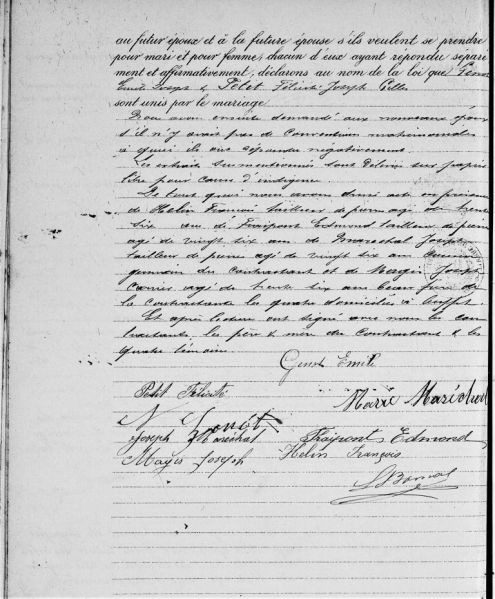 au futur époux et à la future épouse s'ils veulent se prendre
pour mari et pour femme, chacun d'eux ayant répondu séparé
ment et affirmativement, déclarons au nom de la loi que
Emile Joseph & Petit Félicité Joseph
sont unis par le mariage
Nous avons ensuite demandé aux nouveaux époux
s'il n'y avait pas de Conventions matrimoniales
à quoi ils ont répondu négativement.
Les extraits susmentionnés sont délivrés sur papier
libre pour cause d'indigence
De tout quoi nous avons dressé acte en présence
de Helin François tailleur de pierre agé de trente
six ans de Fraipont Edmond tailleur de pierre
agé de vingt six ans de Maréchal Joseph
tailleur de pierres agé de vingt six ans cousin
germain du Contractant et de Joseph
carrier agé de trente six ans beau frère de
la Contractante les quatre domiciliés à
Et après lecture ont signé avec nous les con
tractants, les père & mère du Contractant & les
quatre témoins
Emile
Petit Félicité
Marie Maréchal
Joseph Maréchal
Fraipont Edmond
Joseph
Helin François